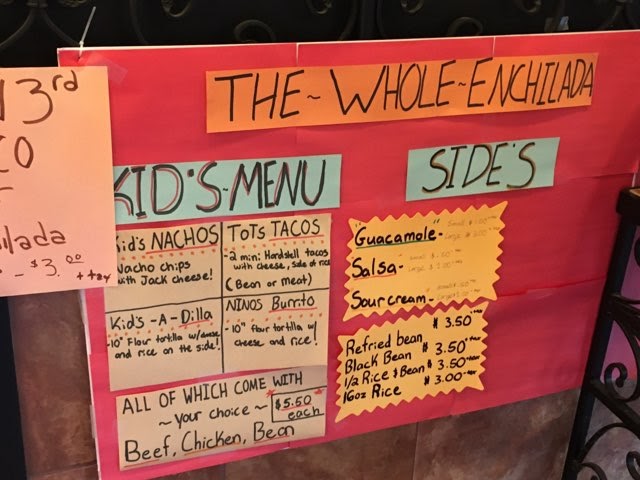 13rd
CO
ilada
- $3.00
+ tax
THE ~ WHOLE ~ ENCHILADA
KID'S ~ MENU
SIDE'S
Kid's NACHOS
Nacho chips
with Jack cheese!
TOTS TACOS
- 2 mini Hardshell tacos
with cheese, side of rice
(Bean or meat)
Kid's -A- Dilla
- 10" Flour tortilla w/
and rice on the side!
NINOS Burrito
- 10" flour tortilla w/
cheese and rice!
ALL OF WHICH COME WITH
~ your choice ~
$5.50
each
Beef, Chicken, Bean
"Guacamole" -
Salsa -
Sour cream -
Refried bean $3.50
Black Bean $3.50
1/2 Rice & Bean $3.50
16oz Rice $3.00